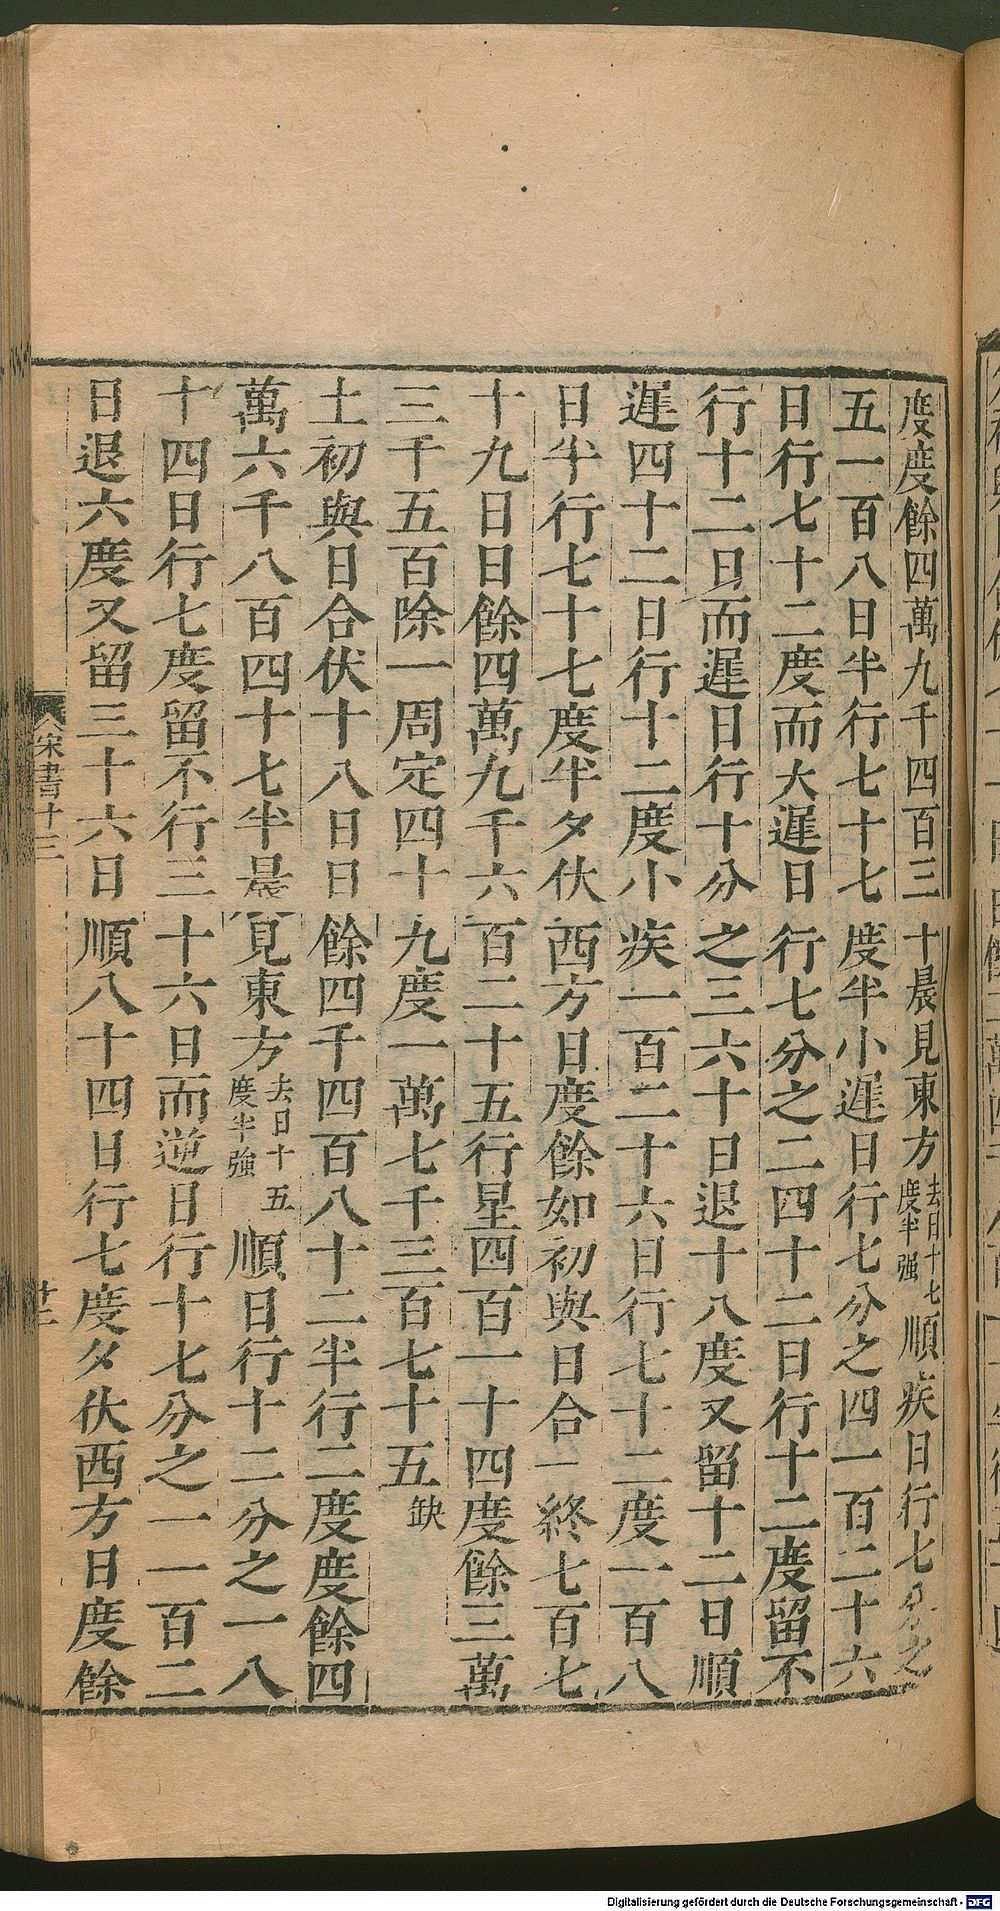 度度餘四萬九千四百三十晨見東方去日十七度半强順疾日行七分之
五一百八日半行七十七度半小遲日行七分之四一百二十六
日行七十二度而大遲日行七分之二四十二日行十二度留不
行十二日而遲日行十分之三六十日退十八度又留十二日順
遲四十二日行十二度小疾一百二十六日行七十二度一百八
日半行七十七度半夕伏西方日度餘如初與日合一終七百七
十九日日餘四萬九千六百二十五行星四百一十四度餘三萬
三千五百除一周定四十九度一萬七千三百七十五缺
土初與日合伏十八日日餘四千四百八十二半行二度度餘四
萬六千八百四十七半晨見東方去日十五度半強順日行十二分之一八
十四日行七度留不行三十六日而逆日行十七分之一一百二
日退六度又留三十六日順八十四日行七度夕伏西方日度餘
宋書十三
廿二
Digitalisierung gefördert durch die Deutsche Forschungsgemeinschaft - DFG